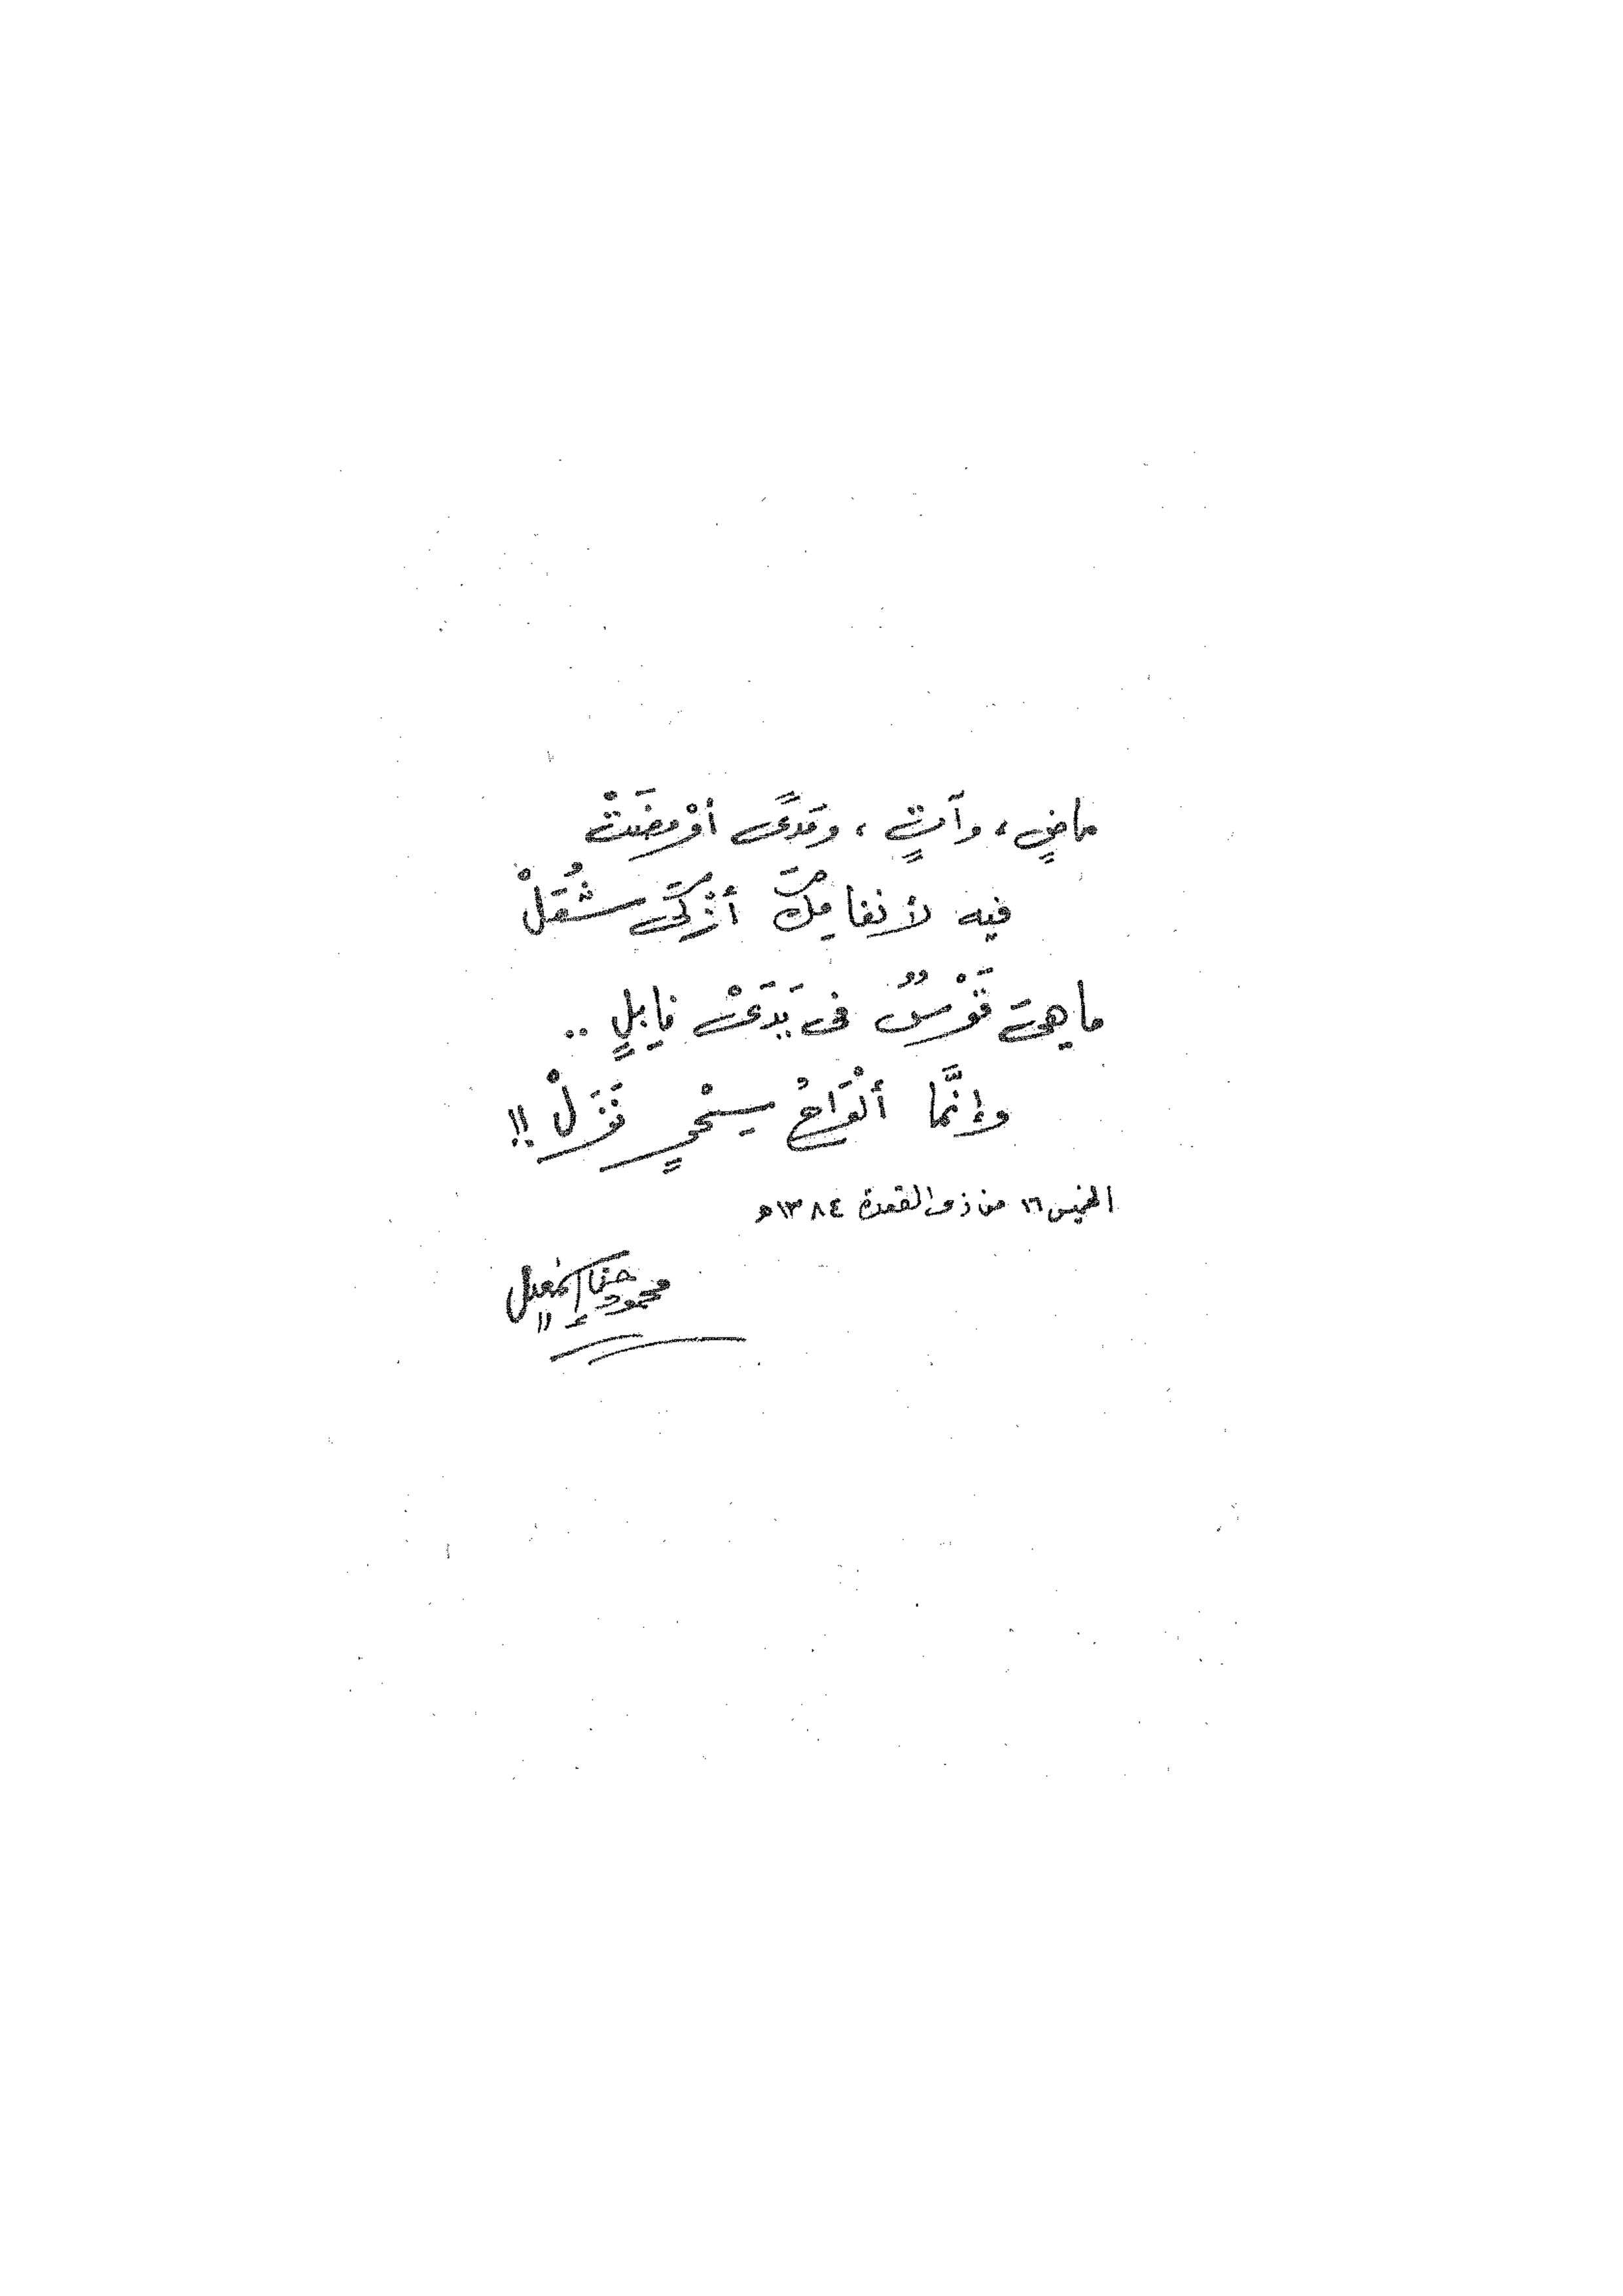 ماضٍ ، وآتٍ ، ومَدًى أوْمضَتْ
فيه لأنغامِكَ أزْكَى شُعَلْ
ما هىَ قَوْسٌ فى يَدَىْ نابِلٍ ..
وإنَّما ألْوَاحُ سِحْرٍ نَزَلْ !!
الخميس ١٦ من ذى القعدة ١٣٨٤ هـ
محمود حسن إسمعيل